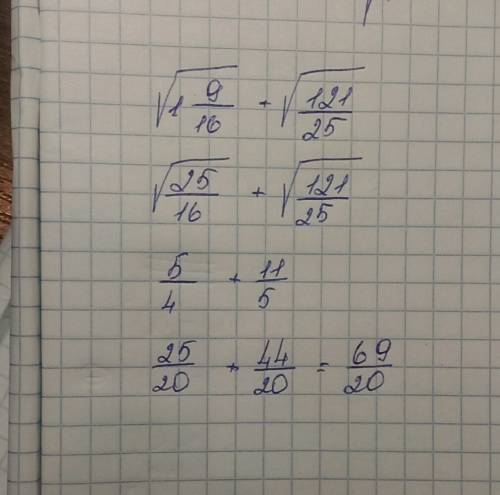 √(1 9/16) + √(121/25)
√(25/16) + √(121/25)
5/4 + 11/5
25/20 + 44/20 = 69/20